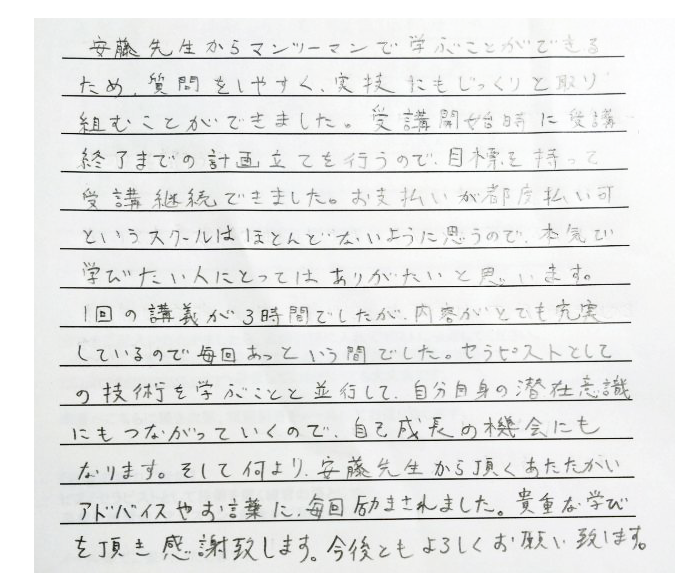 安藤先生からマンツーマンで学ぶことができる
ため、質問をしやすく、実技にもじっくりと取り
組むことができました。受講開始時に受講
終了までの計画立てを行うので、目標を持って
受講継続できました。お支払いが都度払い可
というスクールはほとんどないように思うので、本気で
学びたい人にとってはありがたいと思います。
1回の講義が3時間でしたが、内容がとても充実
しているので毎回あっという間でした。セラピストとして
の技術を学ぶことと並行して、自分自身の潜在意識
にもつながっていくので、自己成長の機会にも
なります。そして何より、安藤先生から頂くあたたかい
アドバイスやお言葉に、毎回励まされました。貴重な学び
を頂き感謝致します。今後ともよろしくお願い致します。